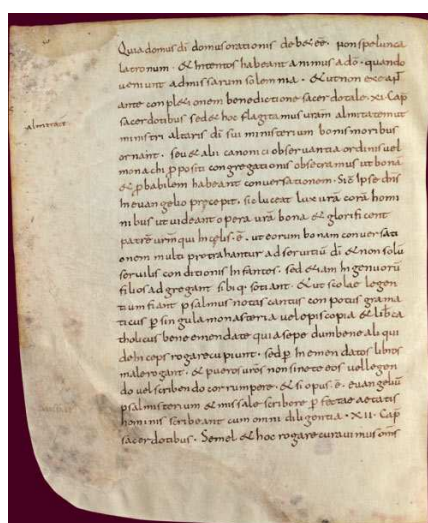 Quia domus di domus orationis debet ee. Non spelunca
latronum. & Intentos habeant animus ad o. quando
veniunt ad missarum solemnia. & ut non exeant
ante conpletionem benedictione sacerdotale. XI. Cap
sacerdotibus sed & hoc flagitamus vram almitatem ut
ministri altaris di sui ministerium bonis moribus
ornaint. seu & alii canonici observantia ordinis vel
monachi ppositi congregationis obsecramus ut bonā
& pbabilem habeant conversationem. Sic Ipse dns
In evangelio precepit. sic luceat lux vrā corā homi
nibus ut videant opera vrā bona & glorificent
patrē vrm qui In celis. ē. ut eorum bonam conversati
onem multi protrahantur ad servitiū di & non solū
servilis conditionis Infantes. sed & iam Ingenuorū
filios adgregant sibi q. sotiant. & ut scolae legen
tium fiant psalmus notas cantus conpotus grama
ticus p singula monasteria vel episcopia & libros ca
tholicus bene emendate quia sepe dum bene ali qui
dem rogare cupiunt. sed p Inemendatos libros
male rogant. & pueros vrōs non sinete eos vel legen
do vel scribendo corrumpere. & si opus. ē. evangeliū
psalmisterium & missale scribere pfectae aetatis
hominis scribeant cum omni diligentia. XII. Cap
sacerdotibus. Semel & hoc rogare curavimus omīs
almitate